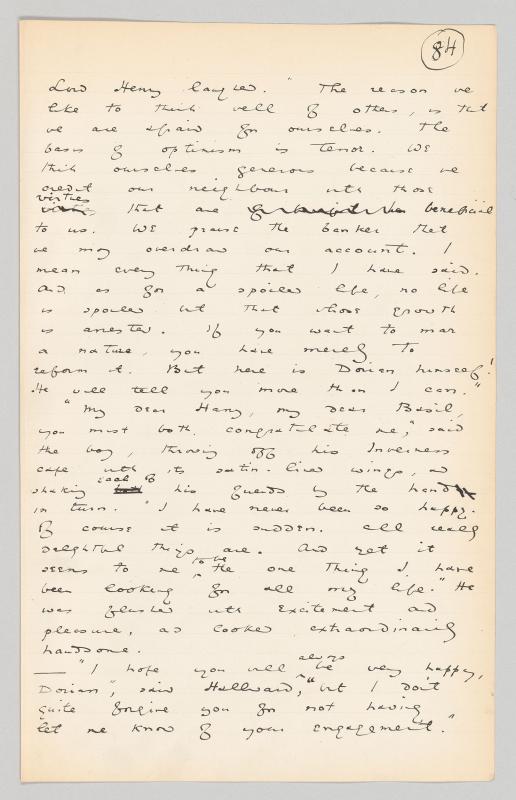 84
Lord Henry laughed. "The reason we
like to think well of others, is that
we are afraid for ourselves. The
basis of optimism is terror. We
think ourselves generous because we
credit our neighbour with those
virtues
virtues that are beneficial
to us. We praise the banker that
we may overdraw our account. I
mean every thing that I have said.
And as for a spoiled life, no life
is spoiled but that whose growth
is arrested. If you want to mar
a nature, you have merely to
reform it. But here is Dorian himself!
He will tell you more than I can."
"My dear Harry, my dear Basil,
you must both congratulate me," said
the boy, throwing off his Inverness
cape with its satin-lined wings, and
each of
shaking both his friends by the hand
in turn. "I have never been so happy.
Of course it is sudden. All really
delightful things are. And yet it
to be
seems to me the one thing I have
been looking for all my life." He
was flushed with excitement and
pleasure, and looked extraordinarily
handsome.
always
"I hope you will be very happy,
Dorian", said Hallward, "but I don't
quite forgive you for not having
let me know of your engagement."